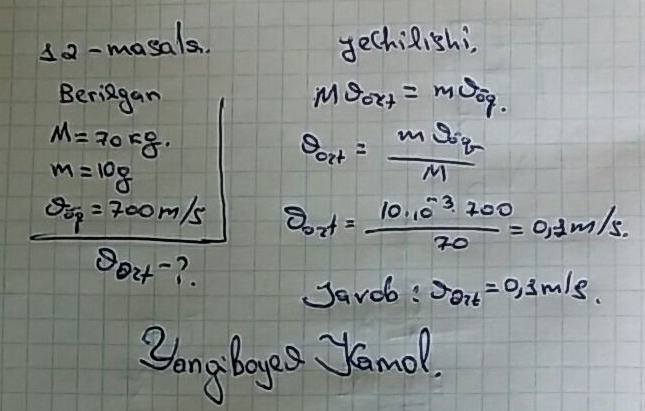 12-masala.
Berilgan
M=70kg.
m=10g
ϑōq=700m/s
ϑort-?.
yechilishi.
Mϑort=mϑōq.
ϑort = mϑōq / M
ϑort = 10·10⁻³·700 / 70 = 0,1m/s.
Javob: ϑort=0,1m/s.
Yangiboyev Kamol.